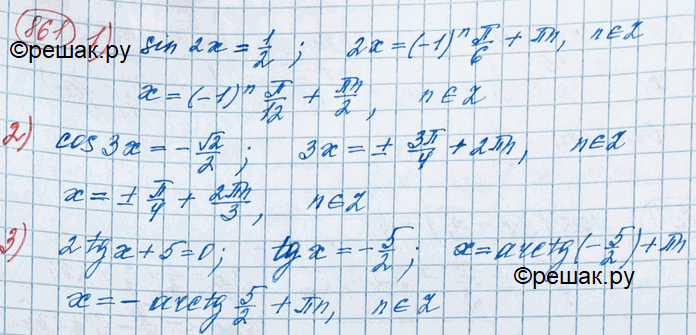 861 1) sin 2x = 1/2 ; 2x = (-1)^n π/6 + πn, n∈Z
©решак.ру
x = (-1)^n π/12 + πn/2, n∈Z
2) cos 3x = -√2/2 ; 3x = ± 3π/4 + 2πn, n∈Z
x = ± π/4 + 2πn/3, n∈Z
3) 2 tg x + 5 = 0; tg x = -5/2 ; x = arctg(-5/2) + πn
x = - arctg 5/2 + πn, n∈Z
©решак.ру